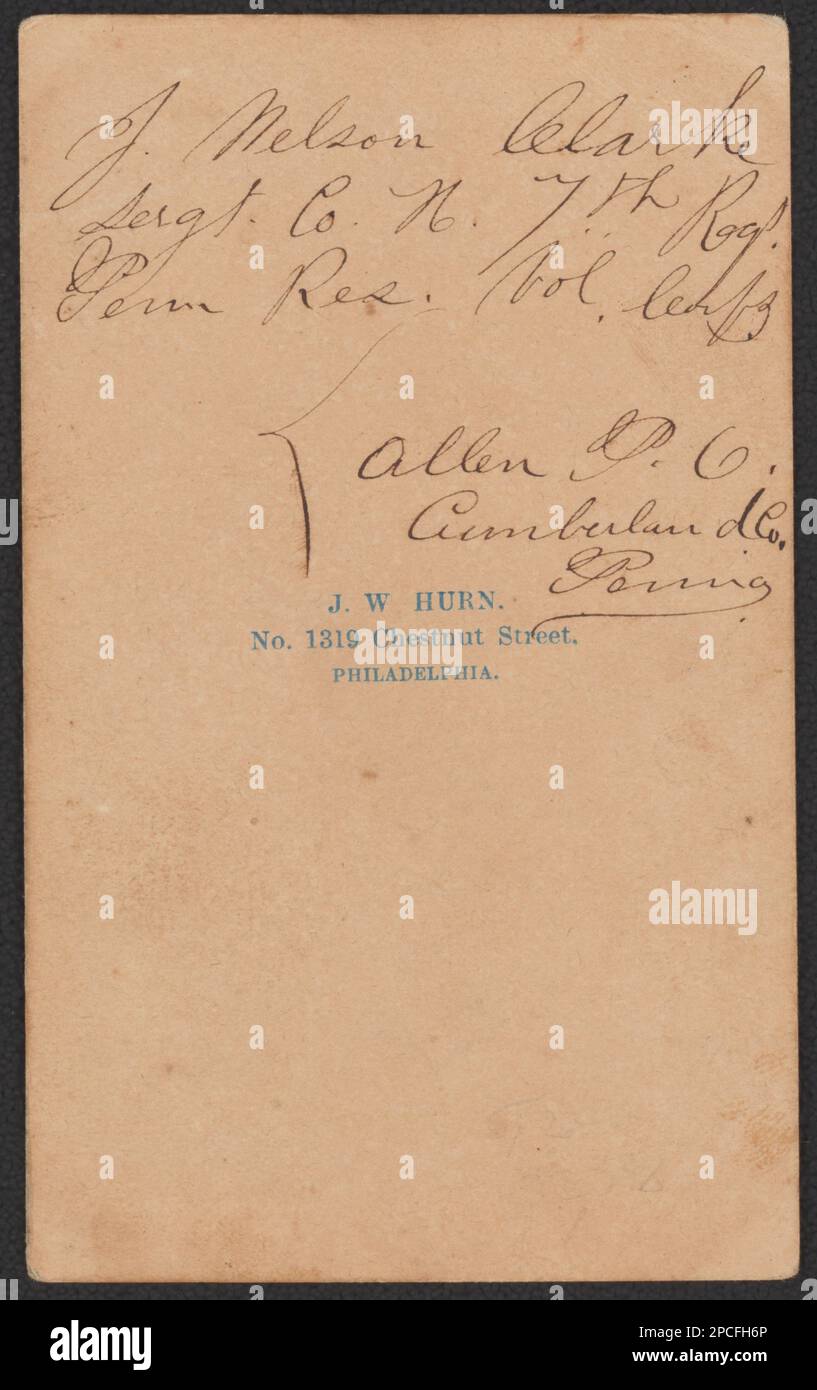 J. Nelson Clarke
Sergt. Co. H. 7th Reg.
Penn Res. Vol. Corps
Allen P. O.
Cumberland Co.
Penna
J. W HURN.
No. 1319 Chestnut Street.
PHILADELPHIA.
alamy
Image ID: 2PCFH6P
www.alamy.com